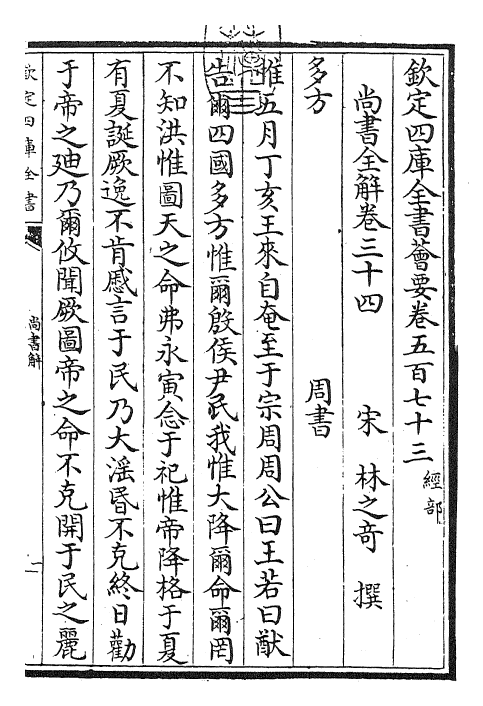 欽定四庫全書薈要卷五百七十三 經部
尚書全解卷三十四 宋 林之奇 撰
多方 周書
惟五月丁亥王來自奄至于宗周周公曰王若曰猷
告爾四國多方惟爾殷侯尹民我惟大降爾命爾罔
不知洪惟圖天之命弗永寅念于祀惟帝降格于夏
有夏誕厥逸不肯慼言于民乃大滛昬不克終日勸
于帝之廸乃爾攸聞厥圖帝之命不克開于民之麗
欽定四庫全書
尚書解
一